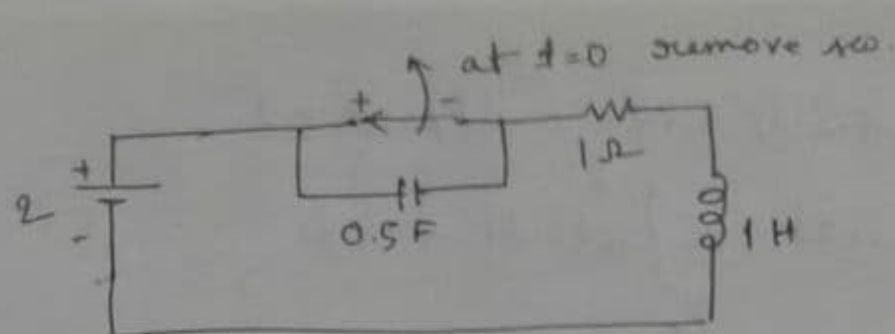 at t=0 remove sw.
+ -
+
1Ω
2
0.5 F
1 H
-